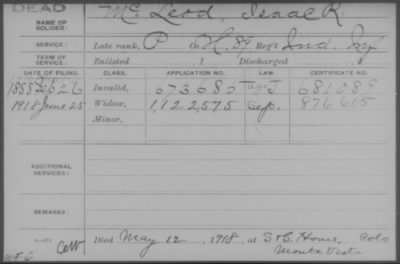 DEAD
NAME OF SOLDIER: McLeod, Isaac R.
SERVICE: Late rank, P Co. H, 89 Reg't Ind. Inf
TERM OF SERVICE: Enlisted , 1 Discharged , 1
DATE OF FILING. CLASS. APPLICATION NO. LAW. CERTIFICATE NO.
1888 Invalid, 673085 J
1918 June 25 Widow, 1,122,575 Sep. 876615
Minor,
ADDITIONAL SERVICES:
REMARKS:
Died May 12, 1918, at S & S. Home, Colo
Monte Vista